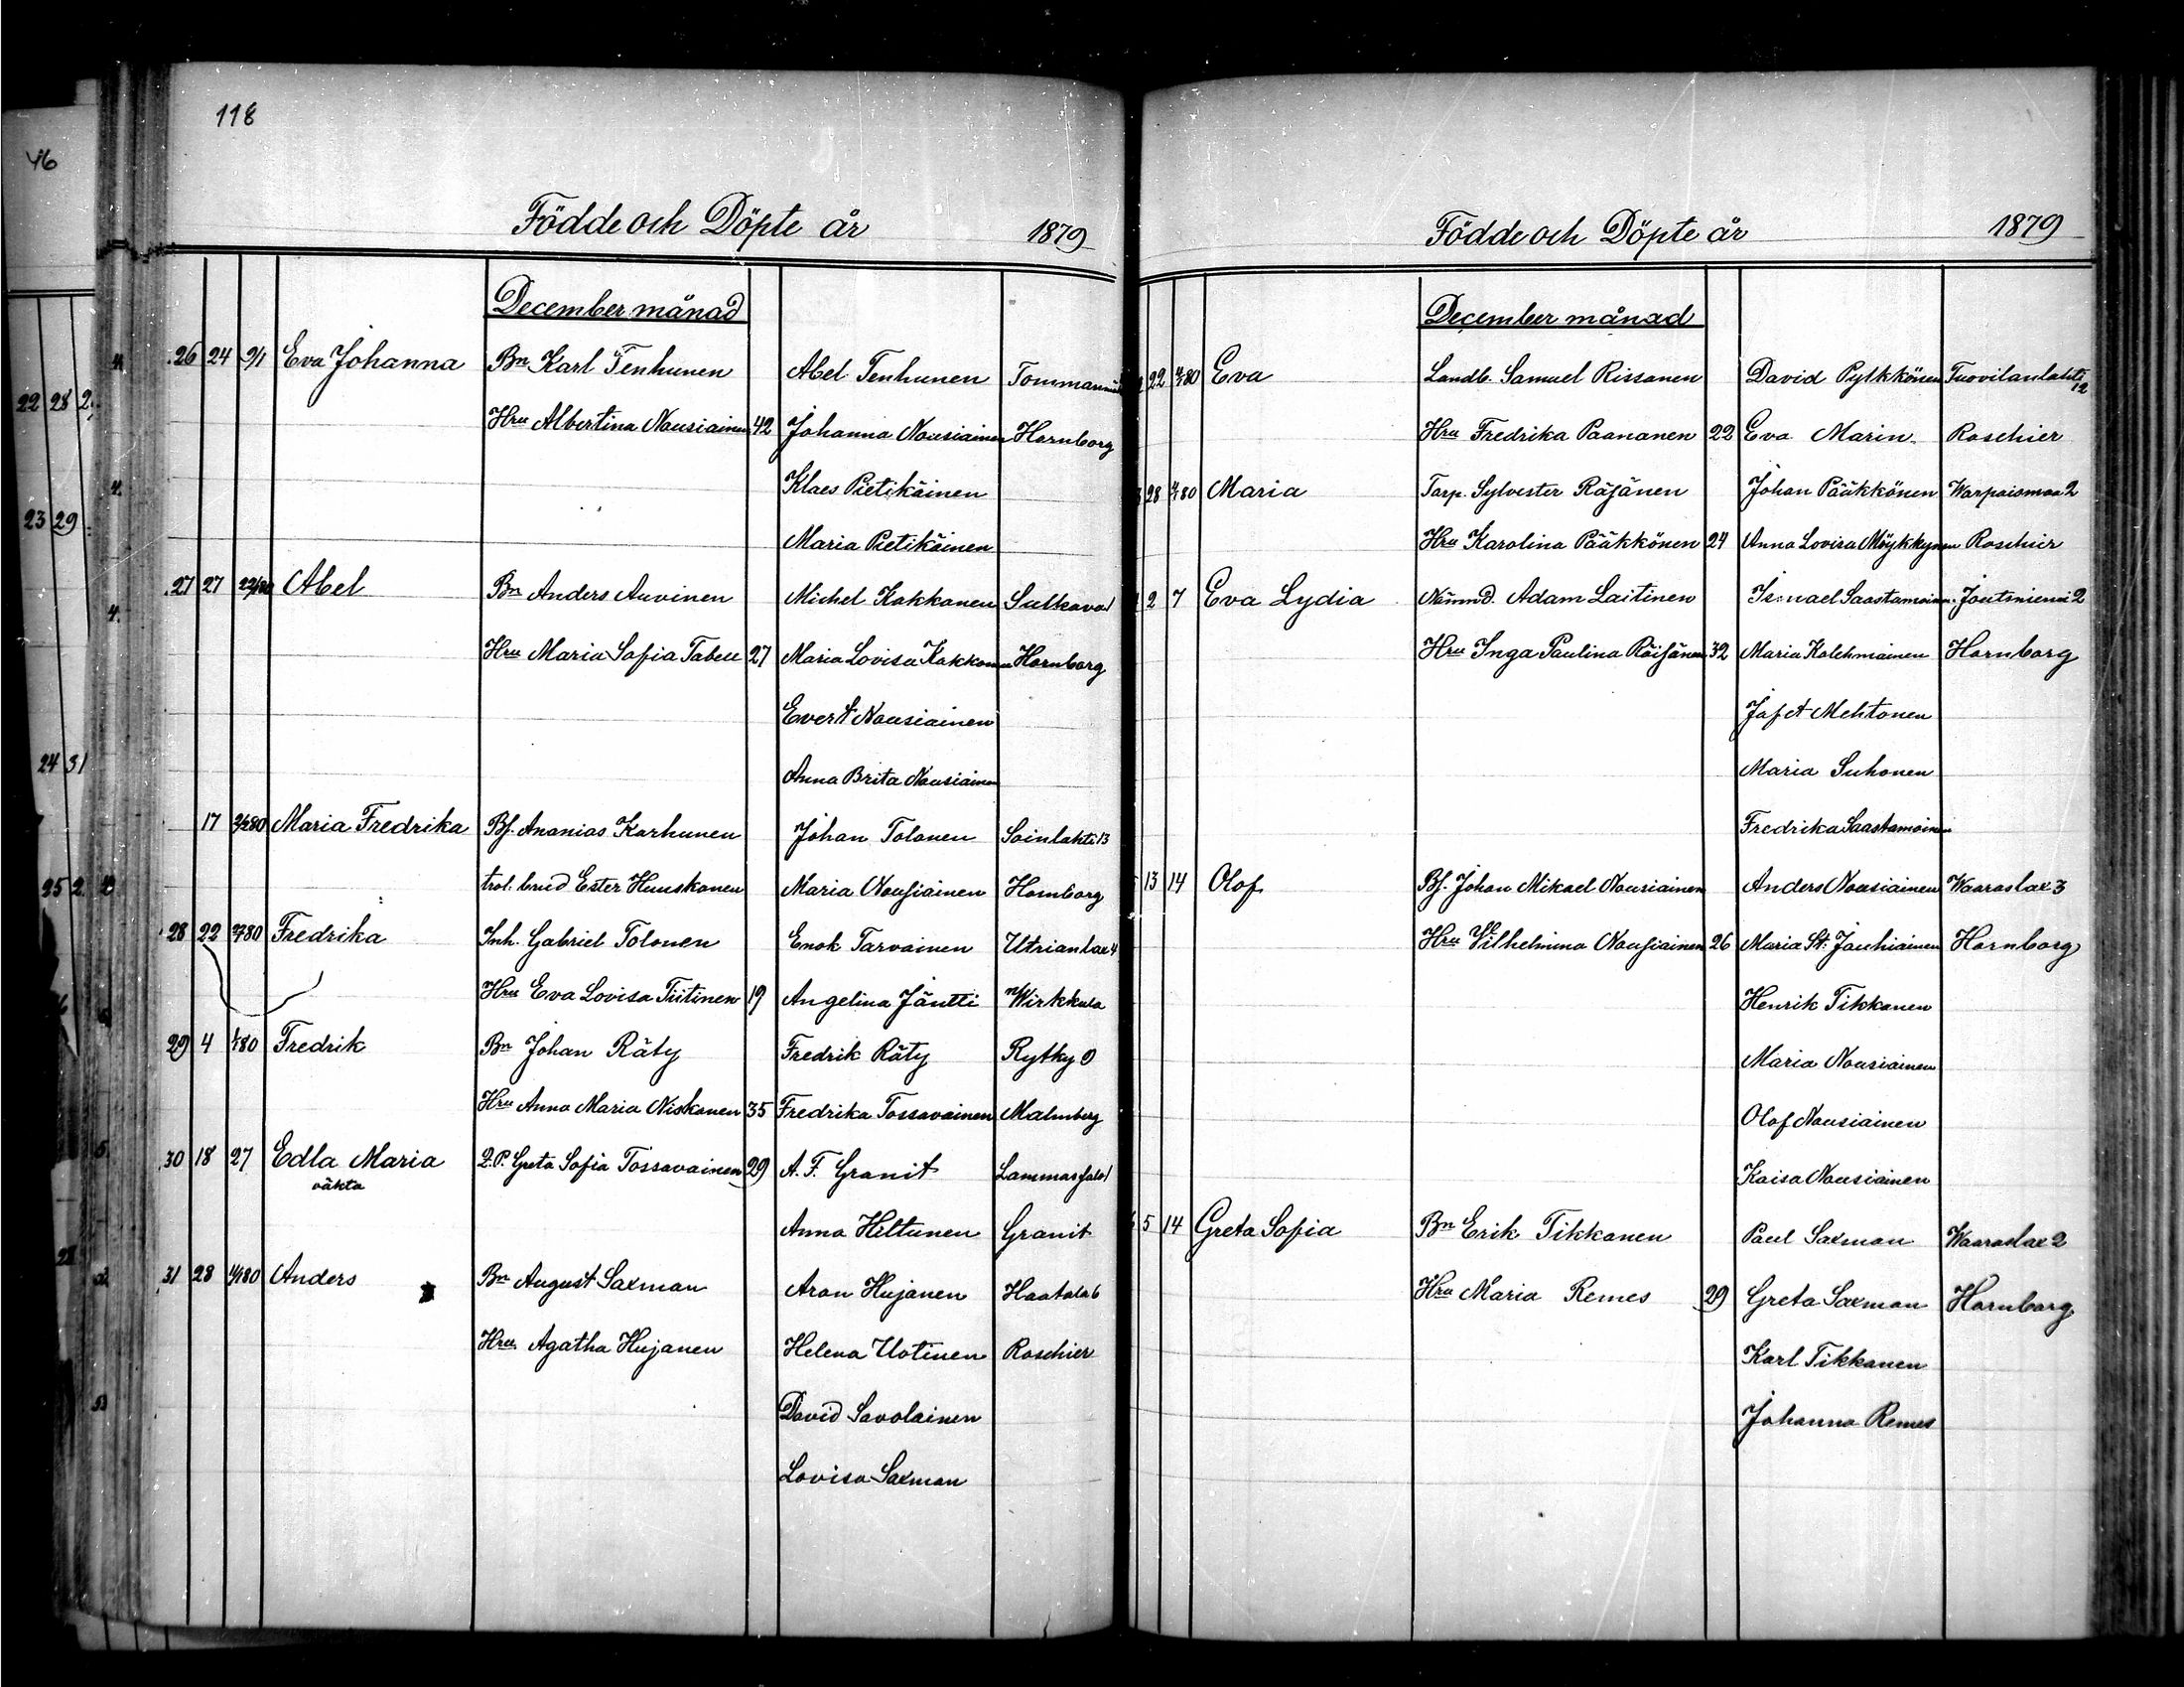 118
46
Födde och Döpte år 1879
December månad
26 24 9/1 Eva Johanna Bn Karl Tenhunen Abel Tenhunen
Hru Albertina Nousiainen 42 Johanna Nousiainen Hornborg
Klaes Pietikäinen
Maria Pietikäinen
27 27 Abel Bn Anders Auvinen Michel Kakkonen Sulkava
Hru Maria Sofia Tabell 27 Maria Lovisa Kakkonen Hornborg
Evert Nousiainen
Anna Brita Nousiainen
17 Maria Fredrika Bf. Ananias Karhunen Johan Tolonen Soinlahti 13
trol. brud Ester Huuskonen Maria Nousiainen Hornborg
28 22 Fredrika Inh. Gabriel Tolonen Enok Tarvainen Utrianlax 4
Hru Eva Lovisa Tiitinen 19 Angelina Jäntti Wirkkula
29 4 Fredrik Bn Johan Räty Fredrik Räty Rytky 9
Hru Anna Maria Niskanen 35 Fredrika Tossavainen Malmberg
30 18 27 Edla Maria Q.P. Greta Sofia Tossavainen 29 A. F. Granit
oäkta
Anna Hiltunen Granit
31 28 Anders Bn August Saxman Aron Hujanen Haatala 6
Hru Agatha Hujanen Helena Uotinen Roschier
David Savolainen
Lovisa Saxman
Födde och Döpte år 1879
December månad
22 Eva Landb. Samuel Rissanen David Pylkkönen Tuovilanlahti 12
Hru Fredrika Paananen 22 Eva Marin Roschier
28 Maria Torp. Sylvester Räsänen Johan Pääkkönen Warpaismaa 2
Hru Karolina Pääkkönen 24 Anna Lovisa Möykkynen Roschier
2 7 Eva Lydia Nämnd. Adam Laitinen Ismael Saastamoinen Joutsniemi 2
Hru Inga Paulina Röisänen 32 Maria Kolehmainen Hornborg
Jafet Mehtonen
Maria Suhonen
Fredrika Saastamoinen
13 14 Olof Bf. Johan Mikael Nousiainen Anders Nousiainen Waaraslax 3
Hru Vilhelmina Nousiainen 26 Maria St: Jauhiainen Hornborg
Henrik Tikkanen
Maria Nousiainen
Olof Nousiainen
Kaisa Nousiainen
5 14 Greta Sofia Bn Erik Tikkanen Paul Saxman Waaraslax 2
Hru Maria Remes 29 Greta Saxman Hornborg
Karl Tikkanen
Johanna Remes